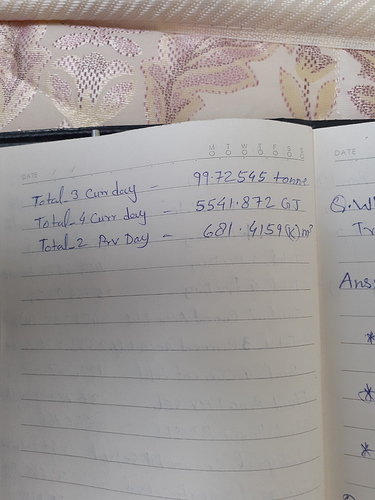 M T W T F S S
DATE
Total_3 Curr day - 99.72545 tonne
Total_4 Curr day - 5541.872 GJ
Total_2 Prv Day - 681.4159 (K) m³
DATE
Q.
Ans
*
*
*